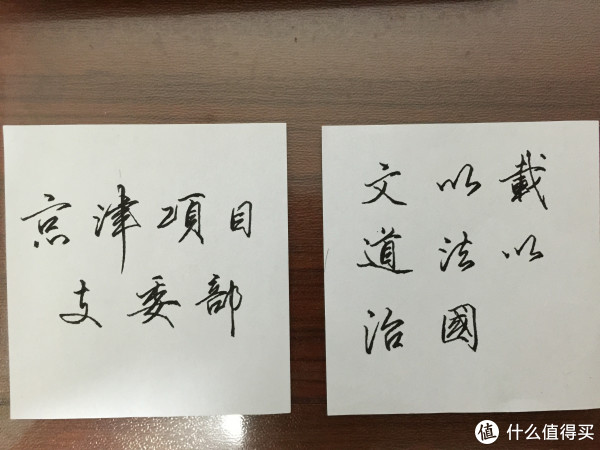 京津項目
支委部
文以戴
道法以
治國
值 什么值得买